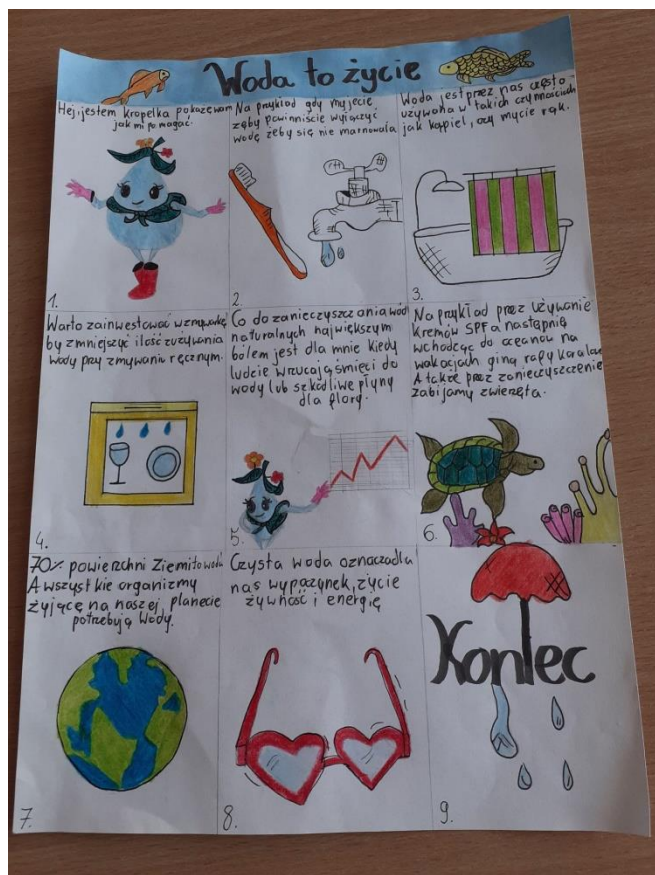 Woda to życie
Hej, jestem kropelka pokażewam
jak mi pomagać.
1.
Na przykład gdy myjecie
zęby powinniście wyłączyć
wodę żeby się nie marnowała
2.
Woda jest przez nas często
używana w takich czynnościach
jak kąpiel, czy mycie rąk.
3.
Warto zainwestować w zmywarkę
by zmniejszyć ilość zużywania
wody przy zmywaniu ręcznym.
4.
Co do zanieczyszczania wód
naturalnych największym
bólem jest dla mnie kiedy
ludzie wrzucają śmieci do
wody lub szkodliwe płyny
dla flory.
5.
Na przykład przez używanie
kremów SPF a następnię
wchodząc do oceanów na
wakacjach giną rafy koralowe
A także przez zanieczyszczenie
zabijamy zwierzęta.
6.
70% powierzchni Ziemi to woda
A wszystkie organizmy
żyjącę na naszej planecie
potrzebują wody.
7.
Czysta woda oznacza dla
nas wypoczynek, życie
żywność i energię
8.
Koniec
9.